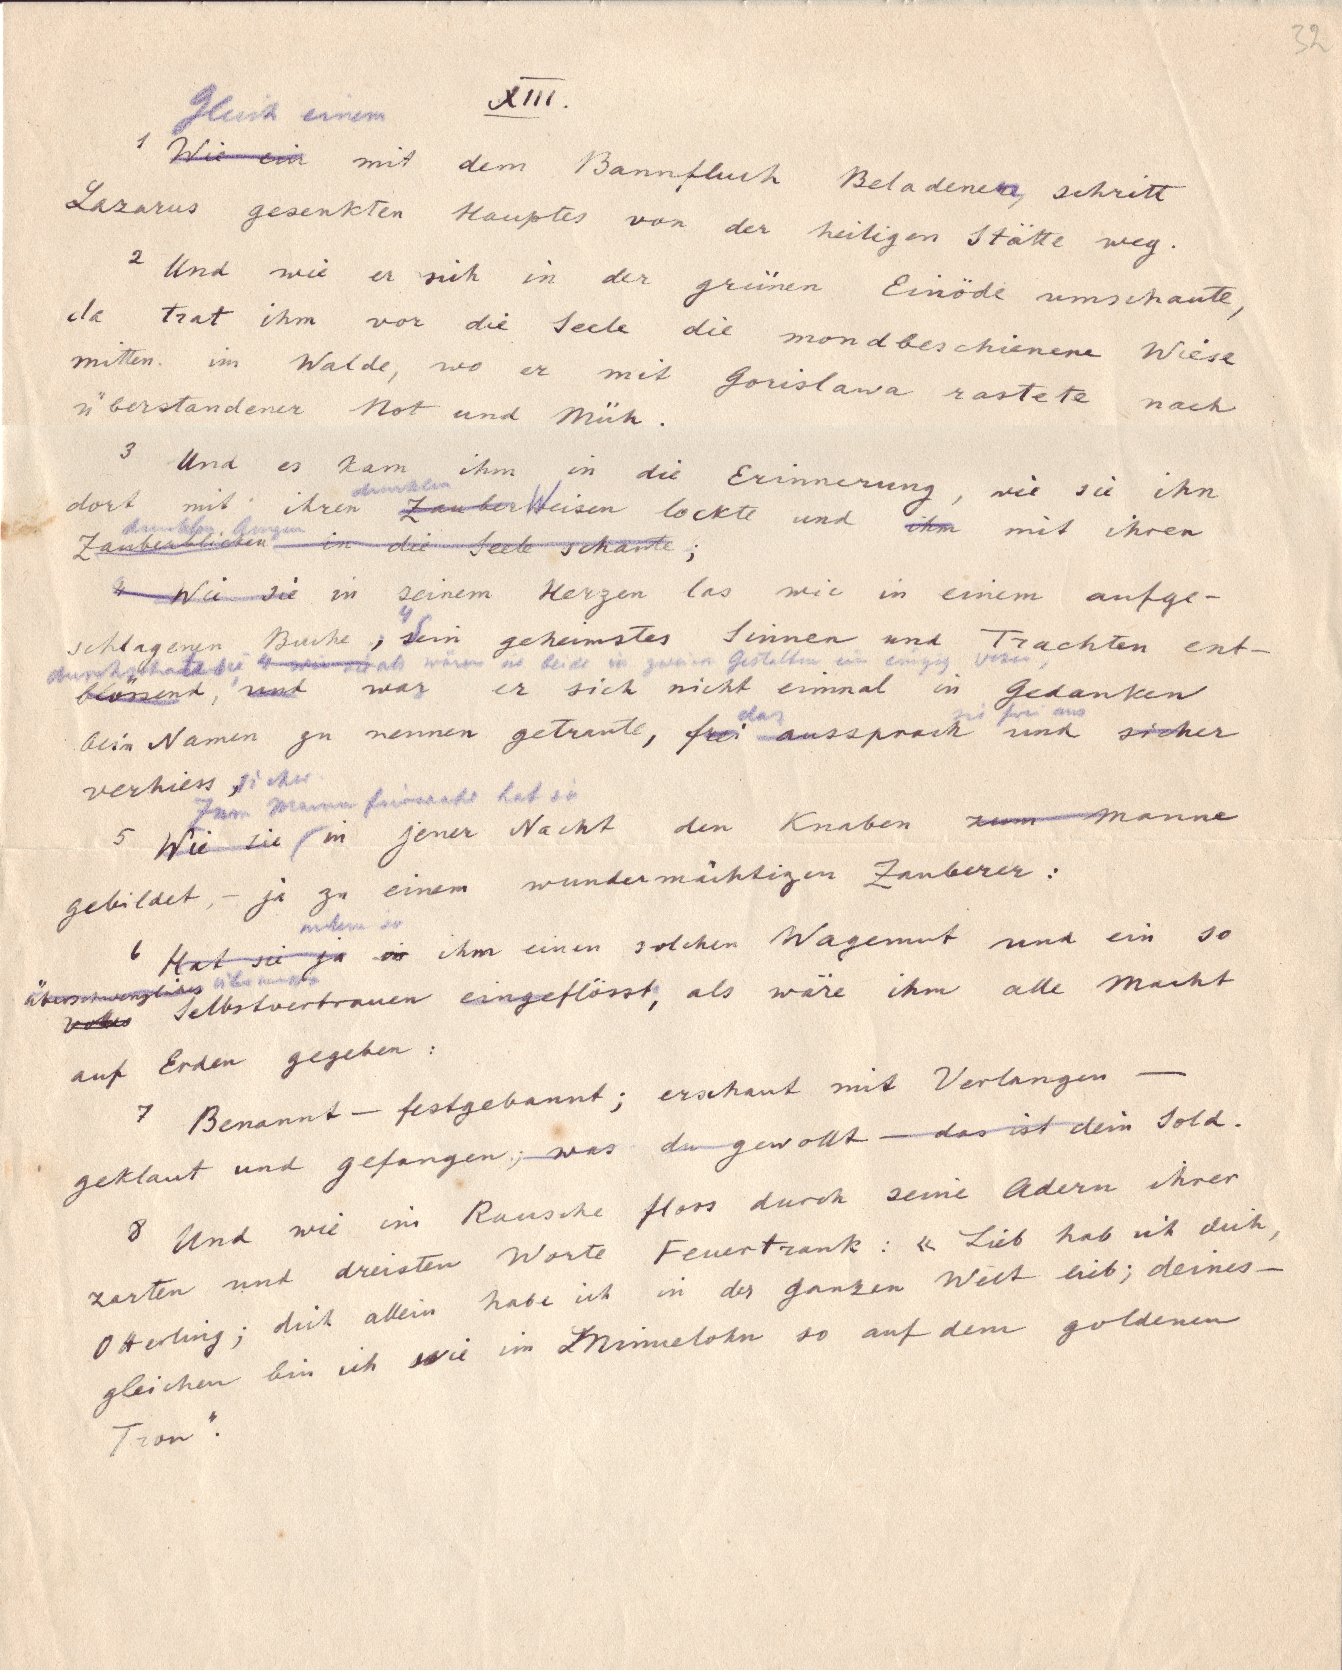 32
XIII.
Gleich einem
1 Wie ein mit dem Bannfluch Beladenen, schritt
Lazarus gesenkten Hauptes von der heiligen Stätte weg.
2 Und wie er sich in der grünen Einöde umschaute,
da trat ihm vor die Seele die mondbeschienene Wiese
mitten im Walde, wo er mit Gorislawa rastete nach
überstandener Not und Müh.
3 Und es kam ihm in die Erinnerung, wie sie ihn
dunklen
dort mit ihren Zauber Weisen lockte und ihm mit ihren
dunklen Augen
Zauberblicken in die Seele schaute;
4 Wie sie in seinem Herzen las wie in einem aufge-
4
schlagenen Buche, sein geheimstes Sinnen und Trachten ent-
durchschaute sie, als wären sie beide in zweien Gestalten ein einzig Wesen,
blössend, und war er sich nicht einmal in Gedanken
das sie frei aus
beim Namen zu nennen getraute, frei aussprach und sicher
verhiess, sicher
Zum Manne hat sie
5 Wie sie in jener Nacht den Knaben zum Manne
gebildet, - ja zu einem wundermächtigen Zauberer:
6 Hat sie ja in ihm einen solchen Wagemut und ein so
überschwengliches
volles Selbstvertrauen eingeflösst, als wäre ihm alle Macht
auf Erden gegeben:
7 Benannt - festgebannt; erschaut mit Verlangen -
geklaut und gefangen; was du gewollt - das ist dein Sold.
8 Und wie im Rausche floss durch seine Adern ihrer
zarten und dreisten Worte Feuertrank: « Lieb hab ich dich,
Otterling; dich allein habe ich in der ganzen Welt lieb; deines-
gleichen bin ich wie im Minnelohn so auf dem goldenen
Tron".